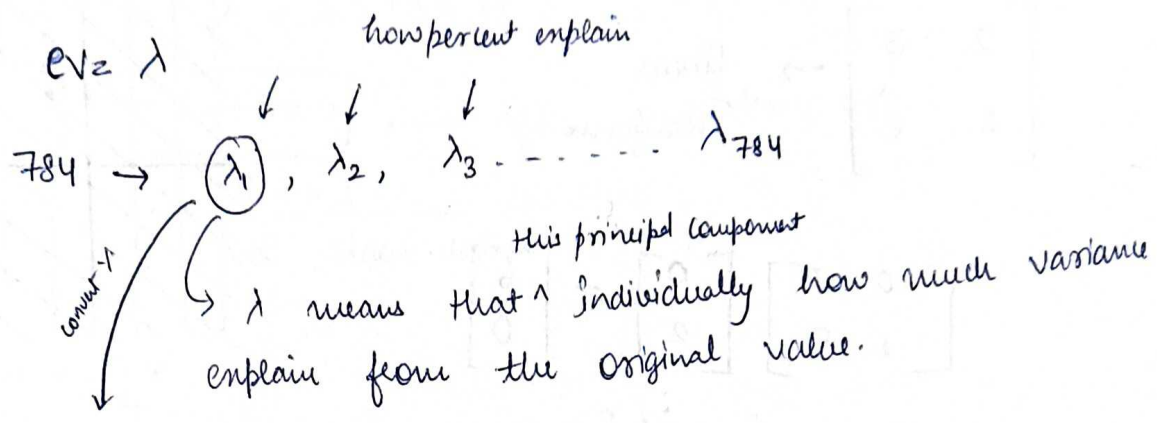 how percent explain
ev = λ
784 → λ₁ , λ₂ , λ₃ - - - - - - λ₇₈₄
this principal component
convert %
λ means that ^ individually how much variance
explain from the original value.